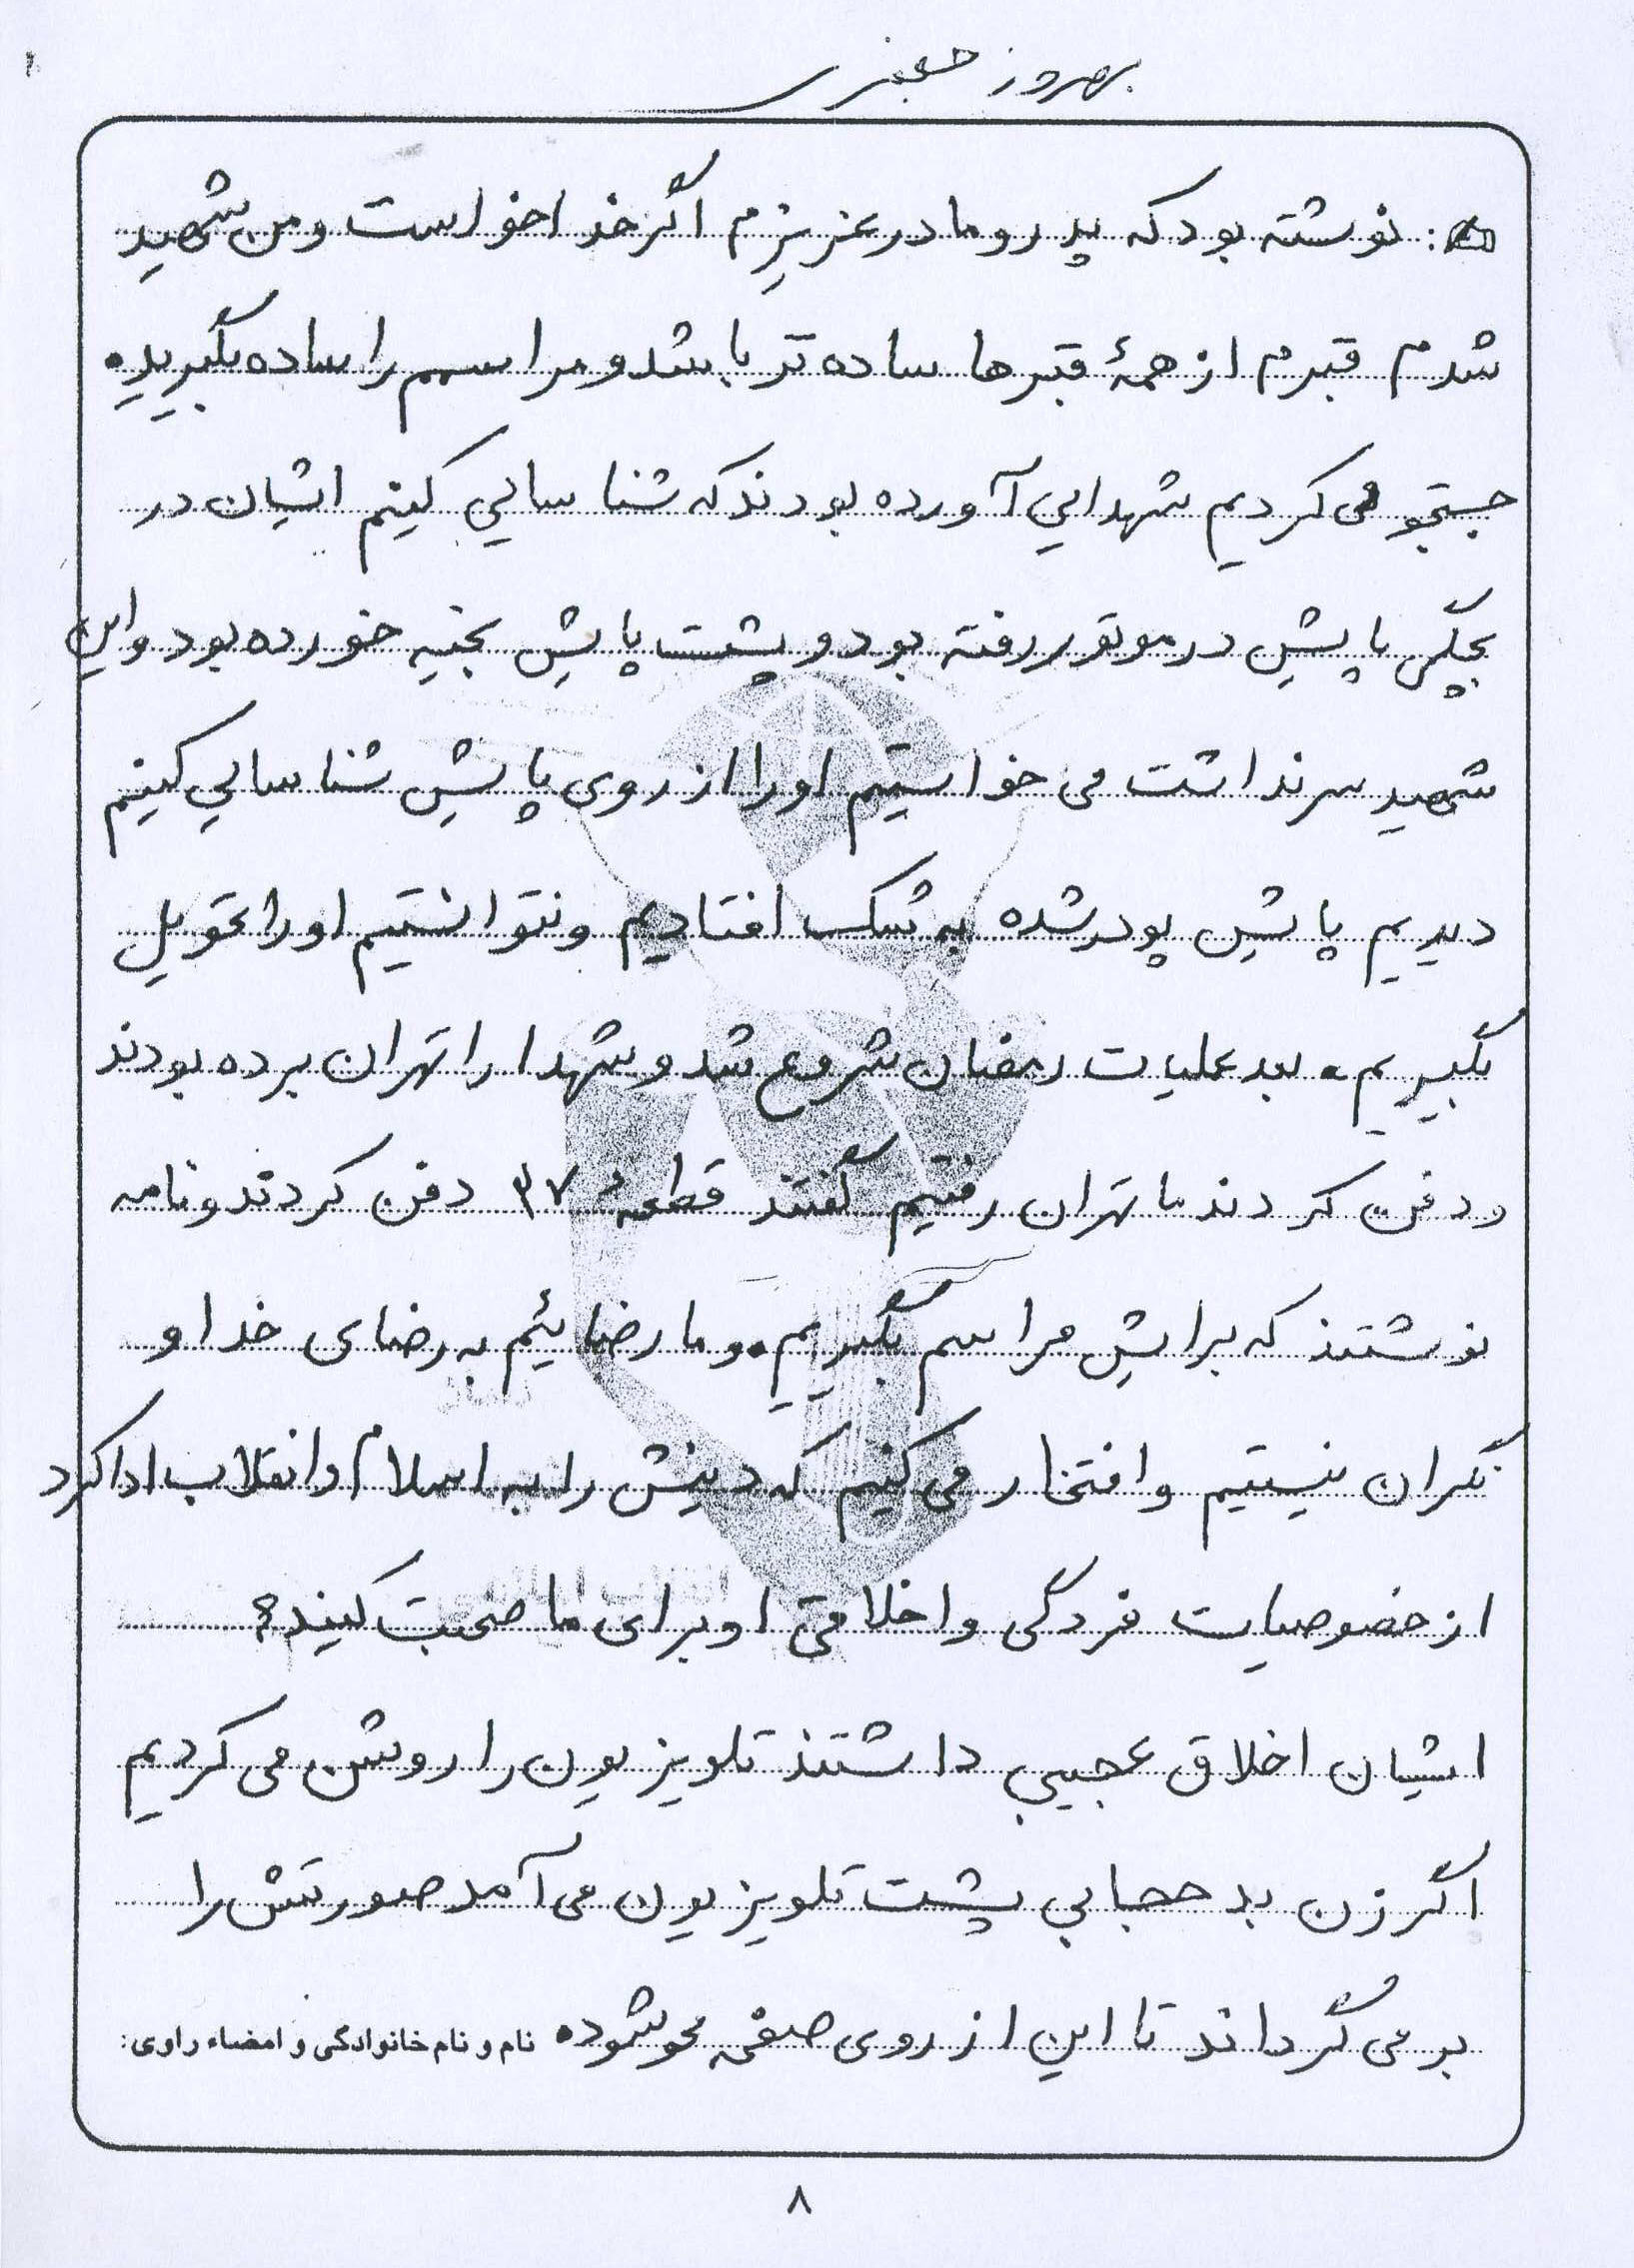 بهروز جعفری
نوشته بود که پدر و مادر عزیزم اگر خدا خواست و من شهید
شدم قبرم از همهٔ قبرها ساده تر باشد و مراسمم را ساده بگیرید.
جستجو می کردیم شهدایی آورده بودند که شناسایی کنیم ایشان در
بچگی پایش در موتور رفته بود و پشت پایش بخیه خورده بود و این
شهید سر نداشت می خواستیم او را از روی پایش شناسایی کنیم
دیدیم پایش پودر شده به شک افتادیم و نتوانستیم او را تحویل
بگیریم. بعد عملیات رمضان شروع شد و شهدا را تهران برده بودند
و دفن کردند ما تهران رفتیم گفتند قطعه ۳۷ دفن کردند و نامه
نوشتند که برایش مراسم بگیریم. و ما رضائیم به رضای خدا و
نگران نیستیم و افتخار می کنیم که دینش را به اسلام و انقلاب ادا کرد
از خصوصیات فردگی و اخلاقی او برای ما صحبت کنید؟
ایشان اخلاق عجیبی داشتند تلویزیون را روشن می کردیم
اگر زن بد حجابی پشت تلویزیون می آمد صورتش را
بر می گرداند تا این از روی صفحه محو شود. نام و نام خانوادگی و امضاء راوی:
۸